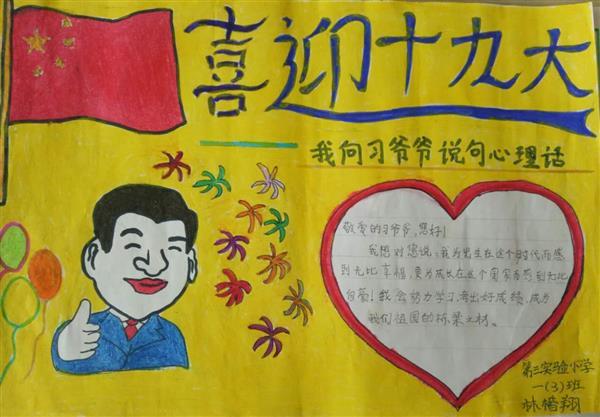 喜迎十九大
我向习爷爷说句心理话
敬爱的习爷爷,您好!
我想对您说,我为出生在这个时代而感
到无比幸福,更为成长在这个国家而感到无比
自豪!我会努力学习,考出好成绩,成为
我们祖国的栋梁之材。
第三实验小学
一(3)班
林锴翔